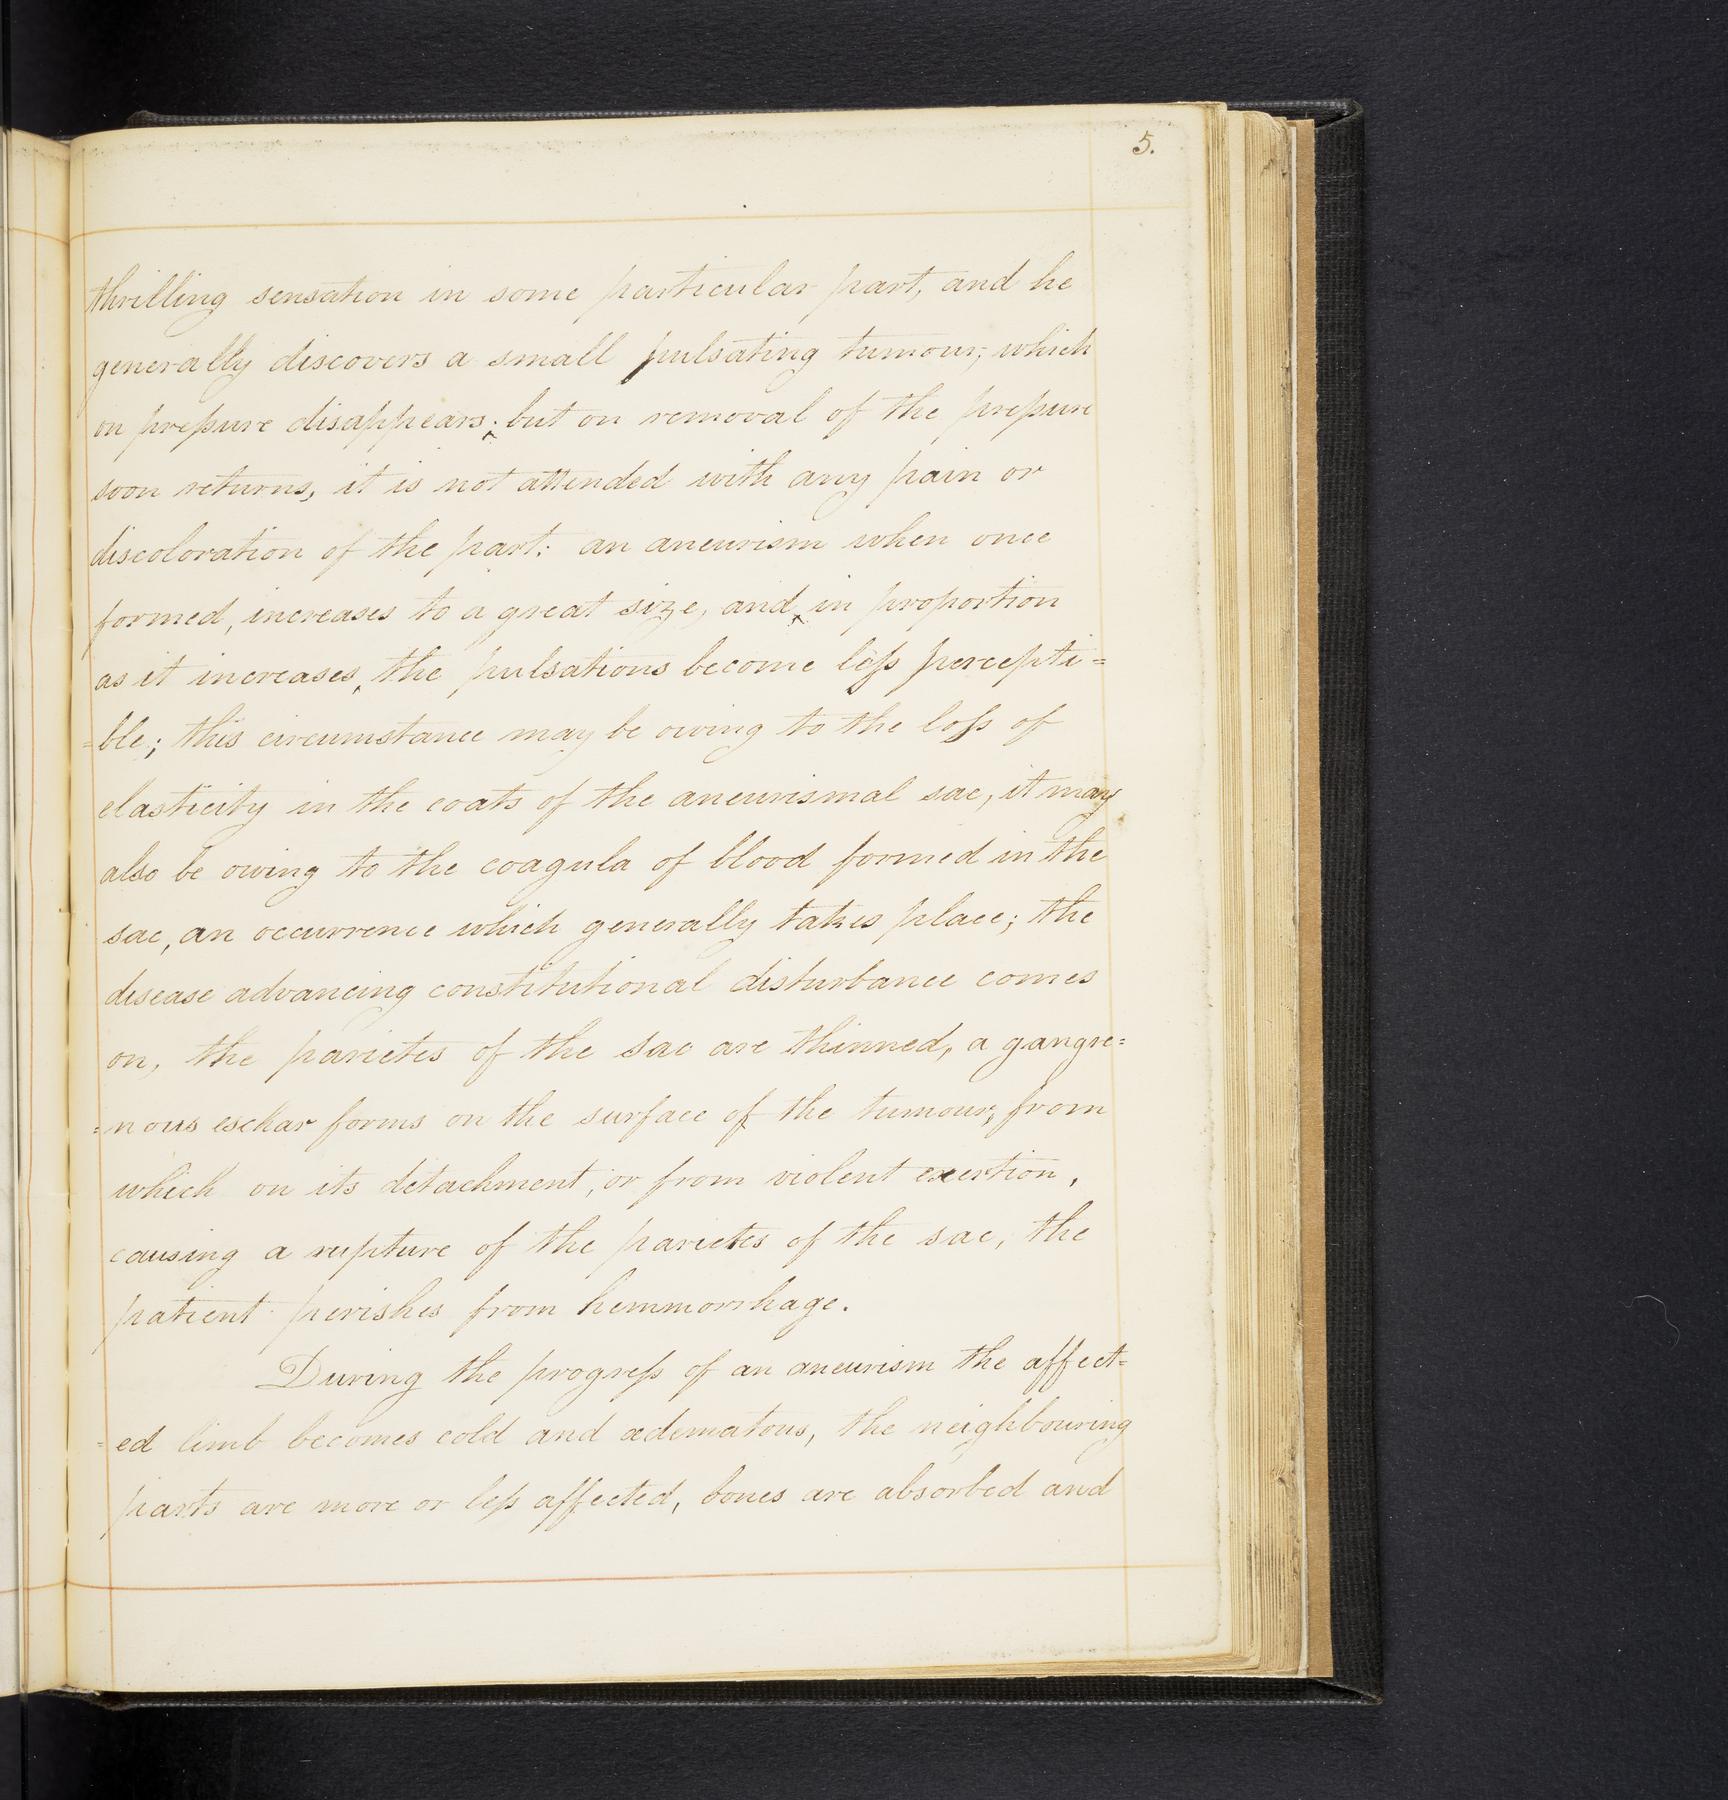 5.
thrilling sensation in some particular part, and he
generally discovers a small pulsating tumour, which
on preſsure disappears; but on removal of the preſsure
soon returns, it is not attended with any pain or
discoloration of the part: an aneurism when once
formed, increases to a great size, and, in proportion
as it increases, the pulsations become leſs percepti=
=ble; this circumstance may be owing to the loſs of
elasticity in the coats of the aneurismal sac, it may
also be owing to the coagula of blood formed in the
sac, an occurrence which generally takes place; the
disease advancing constitutional disturbance comes
on, the parietes of the sac are thinned, a gangre=
=nous eschar forms on the surface of the tumour, from
which on its detachment, or from violent exertion,
causing a rupture of the parietes of the sac, the
patient perishes from hemmorrhage.
During the progreſs of an aneurism the affect=
=ed limb becomes cold and œdematous, the neighbouring
parts are more or leſs affected, bones are absorbed and